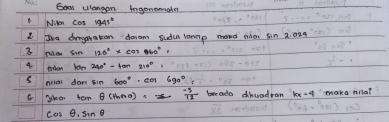 No:
Soal ulangan trigonometri
1 Nilai cos 1945°
2 Jika dinyatakan dalam sudut lancip maka nilai sin 2.024
3 nilai sin 120° × cos 960°
4 nilai tan 240° - tan 210°
5 nilai dari sin 600° . cos 690°
6 Jika tan θ (theta) = -5/12 berada dikuadran ke-4 maka nilai
Cos θ, Sin θ